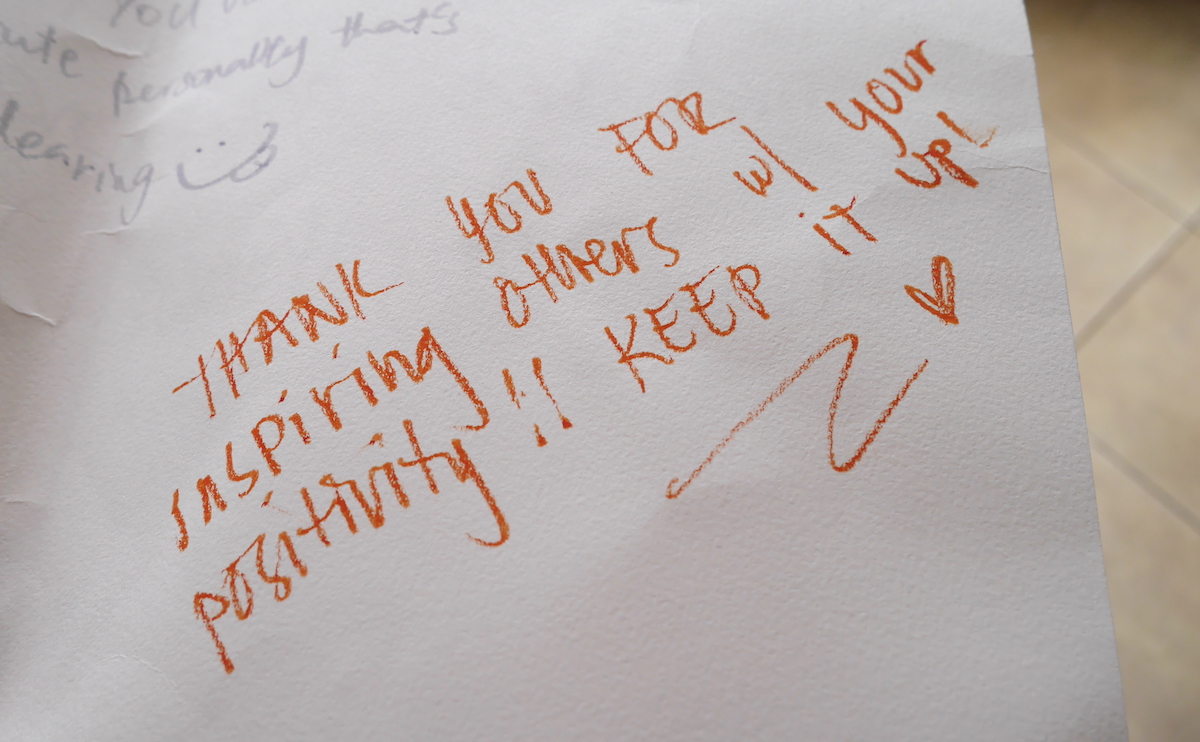 personality that's
THANK YOU FOR
inspiring others w/ your
positivity!! KEEP it up!